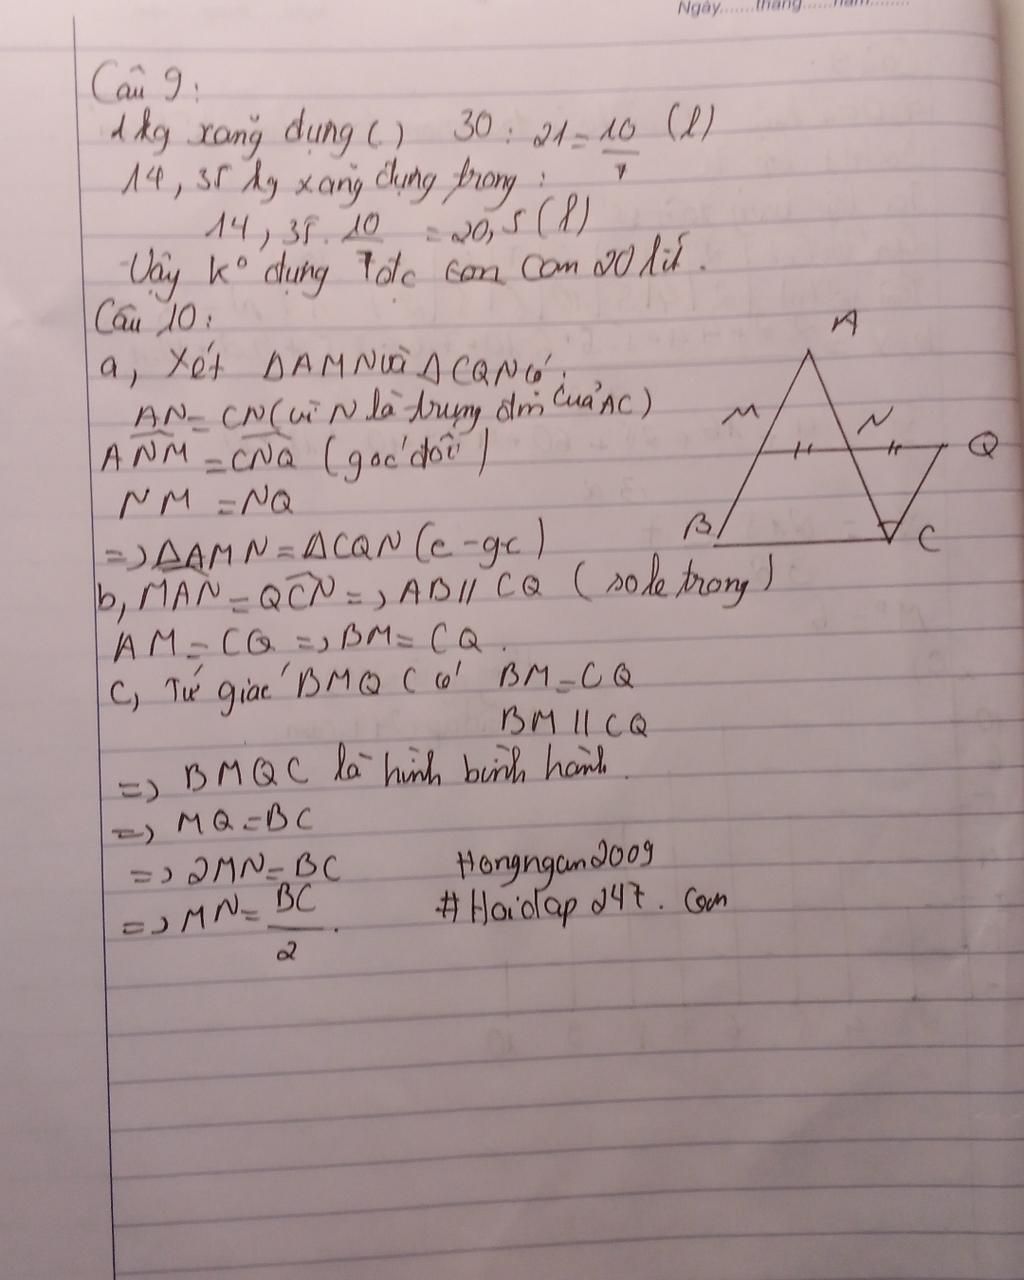 Ngày.......tháng......năm.........
Câu 9:
1kg xăng dụng ( ) 30 : 21 = 10/7 (l)
14,35 kg xăng dụng trong :
14,35. 10/7 = 20,5 (l)
Vậy k° dụng đc can 20 lít.
Câu 10:
a, Xét ΔAMN và ΔCQN có:
AN = CN (vì N là trung điểm của AC)
ANM = CNQ (góc đối)
NM = NQ
=> ΔAMN = ΔCQN (c-gc)
b, MAN = QCN => AB // CQ (sole trong)
AM = CQ => BM = CQ.
c, Tứ giác BMQC có BM = CQ
BM // CQ
=> BMQC là hình bình hành.
=> MQ = BC
=> 2MN = BC
=> MN = BC/2.
Hongngan2009
#Hoidap247.com
A
M
N
Q
B
C